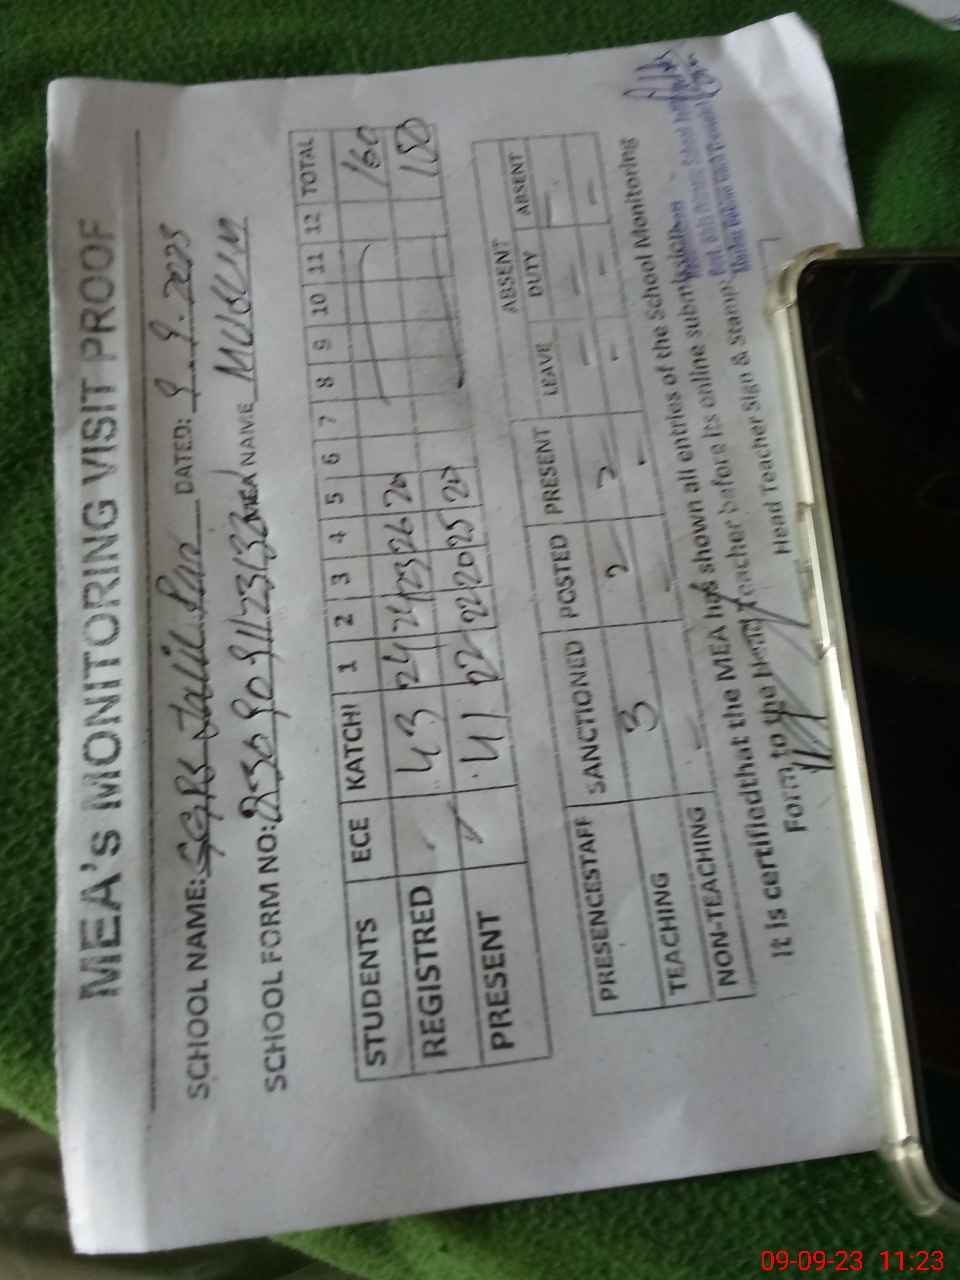 MEA's MONITORING VISIT PROOF
SCHOOL NAME: GGPS DATED: 9.9.2023
SCHOOL FORM NO: MEA NAME
STUDENTS ECE KATCHI 1 2 3 4 5 6 7 8 9 10 11 12 TOTAL
REGISTRED - 43 24 24 23 26 20 160
PRESENT 41 22 22 20 25 20 150
PRESENCESTAFF SANCTIONED POSTED PRESENT LEAVE ABSENT DUTY ABSENT
TEACHING 3 2 2 - - -
NON-TEACHING - - - - - -
It is certifiedthat the MEA has shown all entries of the School Monitoring
Form to the Head Teacher before its online submission
Head Teacher Sign & Stamp:
09-09-23 11:23